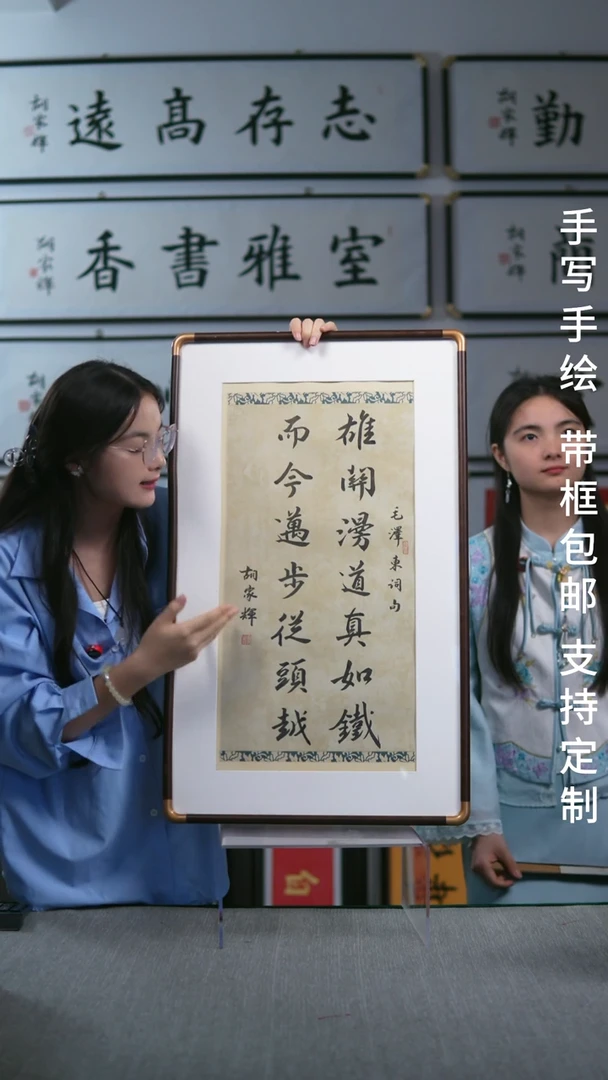 志存高遠
胡家輝
勤
室雅書香
胡家輝
胡家輝
胡家輝
胡
胡
雄關漫道真如鐵
而今邁步從頭越
毛澤東詞句
胡家輝
手写手绘 带框包邮 支持定制